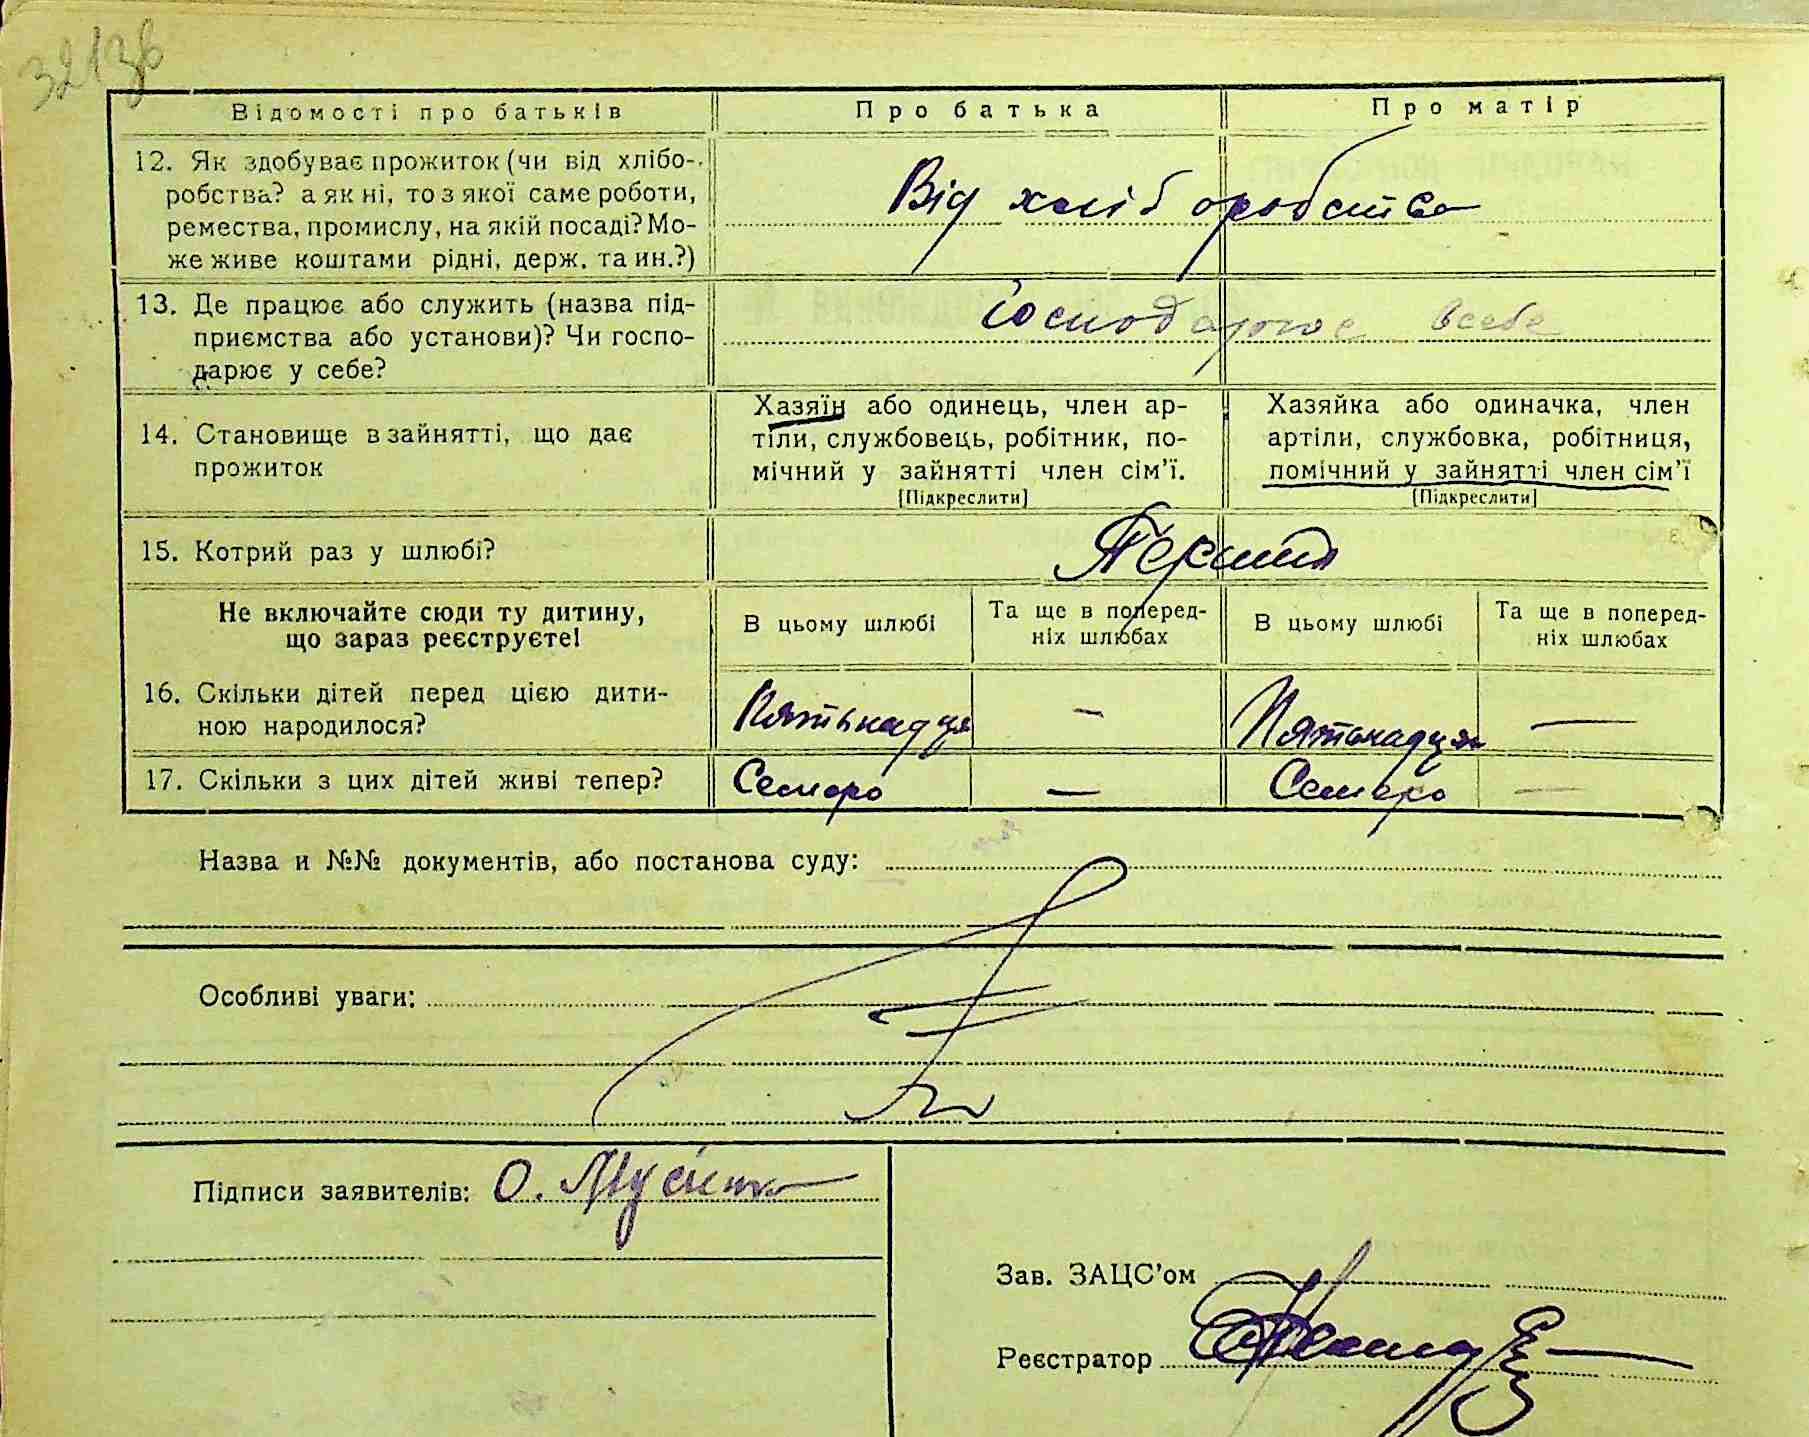 321зв
Відомості про батьків Про батька Про матір
12. Як здобуває прожиток (чи від хлібо-
робства? а як ні, то з якої саме роботи,
ремества, промислу, на якій посаді? Мо-
же живе коштами рідні, держ. та ин.?)
Від хліборобства
13. Де працює або служить (назва під-
приємства або установи)? Чи госпо-
дарює у себе?
Господарює в себе
14. Становище в зайнятті, що дає
прожиток
Хазяїн або одинець, член ар-
тіли, службовець, робітник, по-
мічний у зайнятті член сім’ї.
[Підкреслити]
Хазяйка або одиначка, член
артіли, службовка, робітниця,
помічний у зайнятті член сім’ї
[Підкреслити]
15. Котрий раз у шлюбі?
Перший
Не включайте сюди ту дитину,
що зараз реєструєте!
В цьому шлюбі
Та ще в поперед-
ніх шлюбах
В цьому шлюбі
Та ще в поперед-
ніх шлюбах
16. Скільки дітей перед цією дити-
ною народилося?
Пятьнадця — Пятьнадцять —
17. Скільки з цих дітей живі тепер? Семеро — Семеро —
Назва и №№ документів, або постанова суду:
Особливі уваги:
Підписи заявителів: О.
Зав. ЗАЦС’ом
Реєстратор